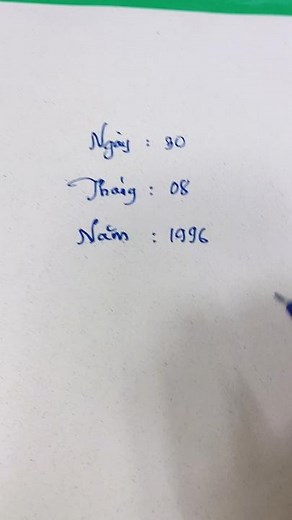 Ngày : 30
Tháng : 08
Năm : 1996